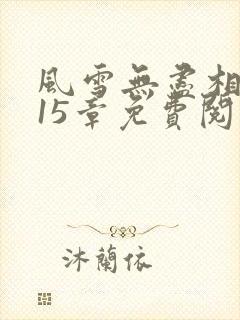 風雪無盡相
15章免費閱
沐蘭依